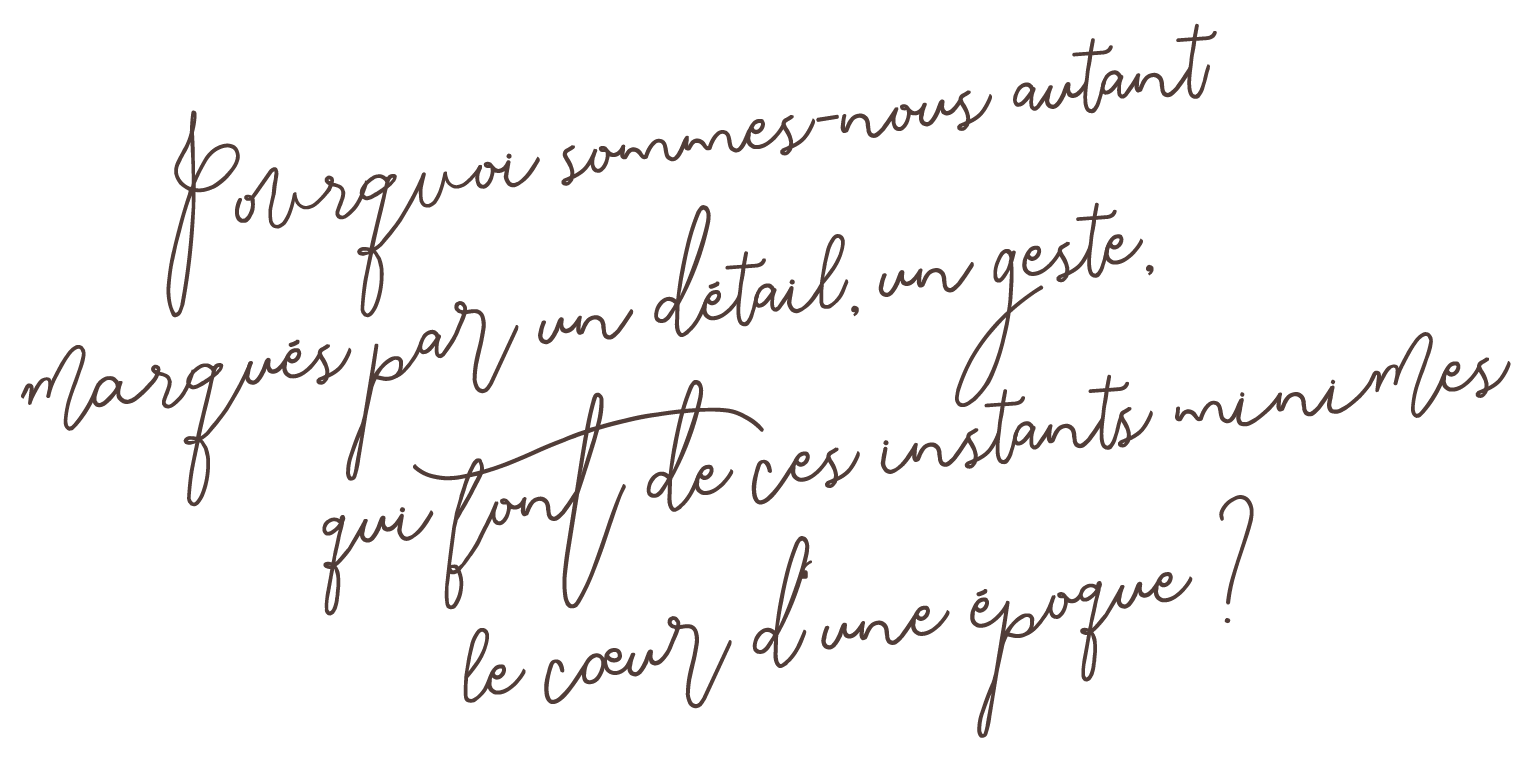 Pourquoi sommes-nous autant
marqués par un détail, un geste,
qui font de ces instants minimes
le cœur d'une époque ?